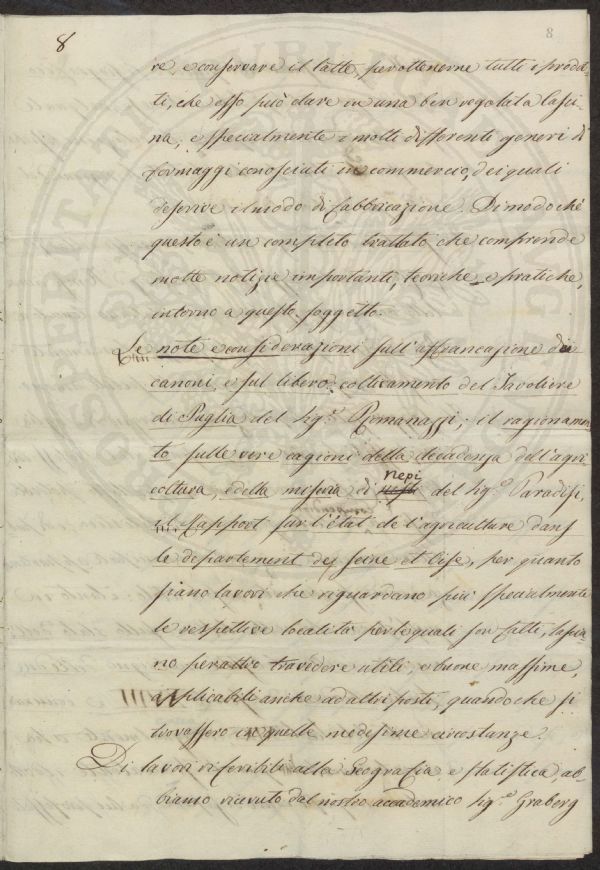 8
8
re, e conservare il latte, per ottenerne tutti i prodot-
ti, che esso può dare in una ben regolata casci-
na, e specialmente i molti differenti generi di
formaggi conosciuti in commercio, dei quali
descrive il modo di fabbricazione. Dimodoché
questo è un completo trattato che comprende
molte notizie importanti, teoriche, e pratiche,
intorno a questo soggetto.
Le note e considerazioni sull'affrancazione dei
canoni, e sul libero coltivamento del Tavoliere
di Puglia del Sig.r Romanazzi; il ragionamen
to sulle vere cagioni della decadenza dell'agri
coltura, e della miseria di Nepi del Sig.r Paradisi,
il Rapport sur l'état de l'agriculture dans
le departement des Seine et Oise, per quanto
siano lavori che riguardano più specialmente
le respettive località per le quali son fatti, lascia
no per altro travedere utili, e buone massime,
applicabili anche ad altri posti, quando che si
trovassero in quelle medesime circostanze.
Di lavori riferibili alla Geografia, e statistica, ab-
biamo ricevuto dal nostro accademico Sig.r Graberg